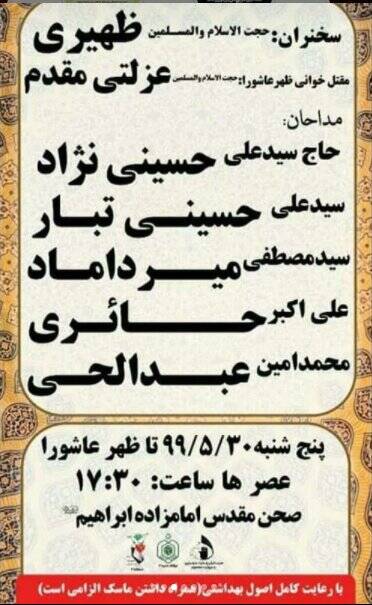 سخنران: حجت الاسلام والمسلمین ظهیری
مقتل خوانی ظهر عاشورا: حجت الاسلام والمسلمین عزلتی مقدم
مداحان:
حاج سیدعلی حسینی نژاد
سیدعلی حسینی تبار
سیدمصطفی میرداماد
علی اکبر حائری
محمدامین عبدالحی
پنج شنبه ۹۹/۵/۳۰ تا ظهر عاشورا
عصر ها ساعت: ۱۷:۳۰
صحن مقدس امامزاده ابراهیم
با رعایت کامل اصول بهداشتی (همراه داشتن ماسک الزامی است)